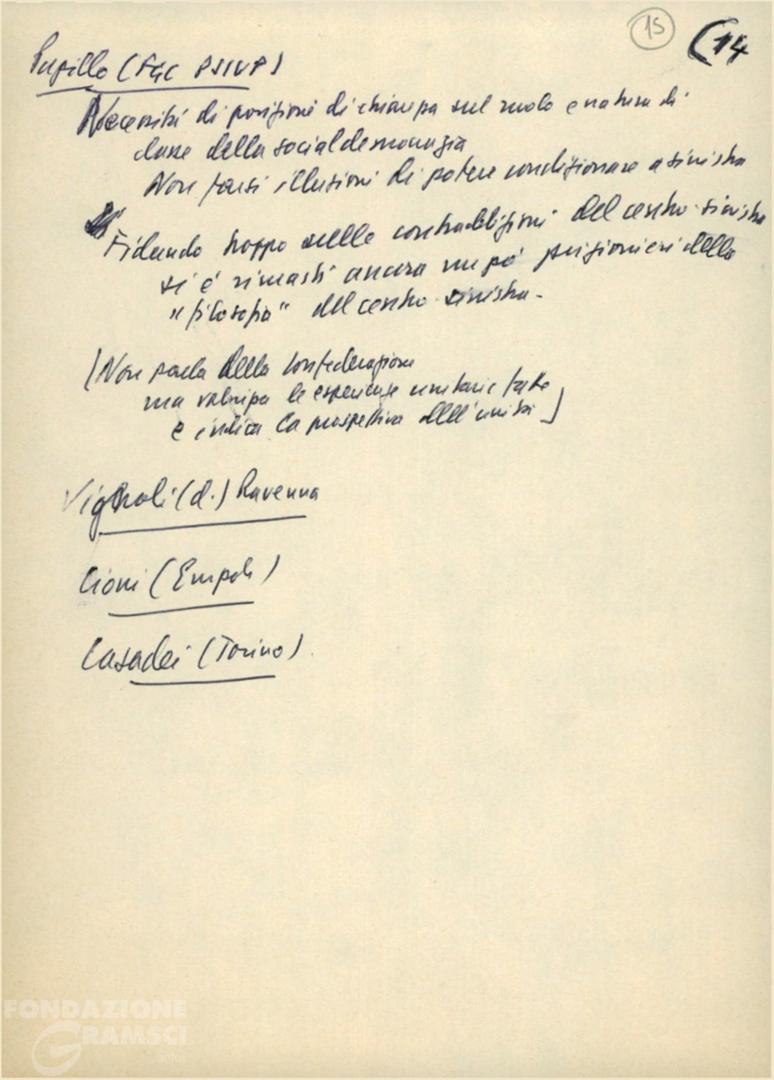 15
(14
Pupillo (FGC PSIUP)
Necessità di posizioni di chiarezza sul ruolo e natura di
classe della socialdemocrazia
Non farsi illusioni di potere condizionare a sinistra
Fidando troppo sulle contraddizioni del centro-sinistra
si è rimasti ancora un po' prigionieri della
"filosofia" del centro-sinistra.
(Non parla della confederazione
ma valorizza le esperienze unitarie fatte
e indica la prospettiva dell'unità)
Vignoli (d.) Ravenna
Cioni (Empoli)
Casadei (Torino)
FONDAZIONE
GRAMSCI